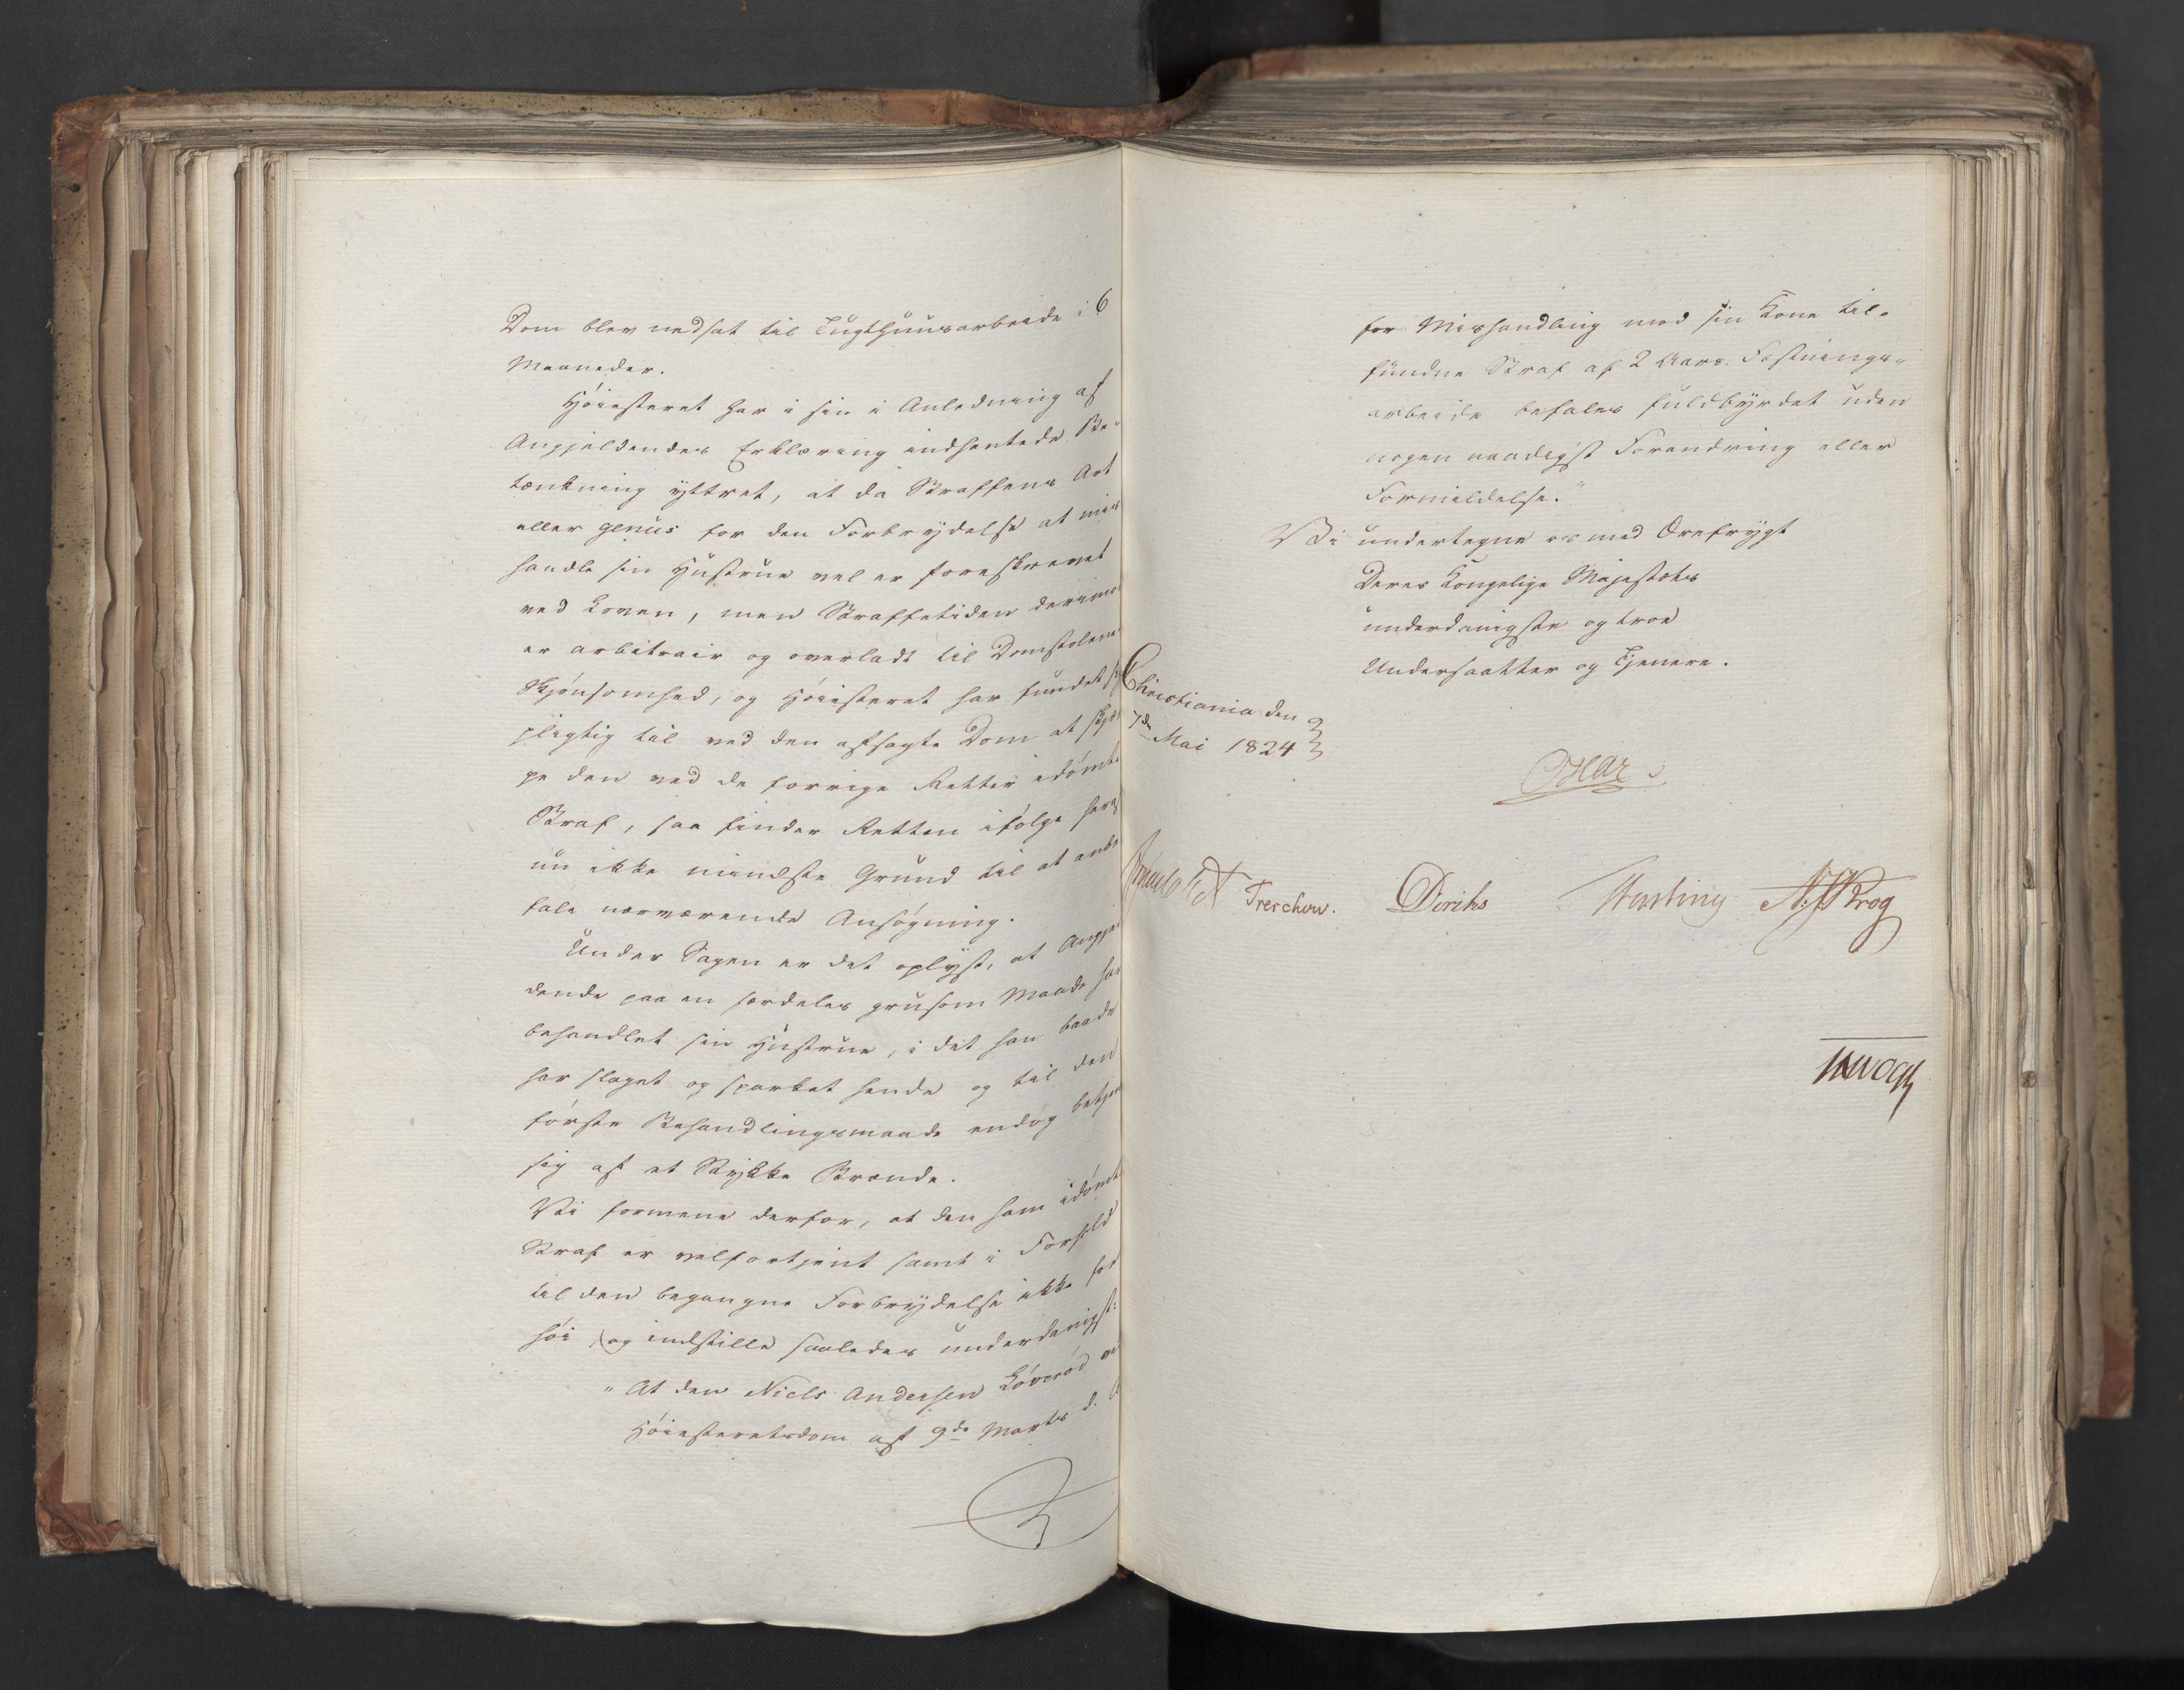 Dom blev nedsat til Tugthuusarbeide i 6
Maaneder.
Høiesteret har i sin i Anledning af
Angjældendes Erklæring indhentede Be-
tænkning yttret, at da Straffens Art
eller genus for den Forbrydelse at mis
handle sin Hustrue vel er foreskrevet
ved Loven, men Straffetiden derimo
er arbitrair og overladt til Domstolene
Skjønsomhed, og Høiesteret har fundet
pligtig til ved den afsagte Dom at skjær
pe den ved de forrige Retter idømte
Straf, saa finder Retten ifølge heraf
nu ikke mindste Grund til at anbe
fale nærværende Ansøgning.
Under Sagen er det oplyst, at Angjel
dende paa en særdeles grusom Maade har
behandlet sin Hustrue, i det han baade
har slaget og sparket hende og til den
første Behandlingsmaade endog betjent
sig af et Stykke Brænde.
Vi formene derfor, at den ham idømte
Straf er velfortjent samt i Forhold
til den begangne Forbrydelse ikke for
høi og indstille saaledes underdanigst:
"At den Niels Andersen Løverød ved
Høiesteretsdom af 9de Marts d. A
for Mishandling mod sin Kone til-
fundne Straf af 2 Aars Fæstnings-
arbeide befales fuldbyrdet uden
nogen naadigst Forandring eller
Formildelse."
Vi undertegne os med Ærefrygt
Deres Kongelige Majestæts
underdanigste og troe
Undersaatter og Tjenere.
Christiania den
7de Mai 1824
Treschow. Diriks N. J. Krog